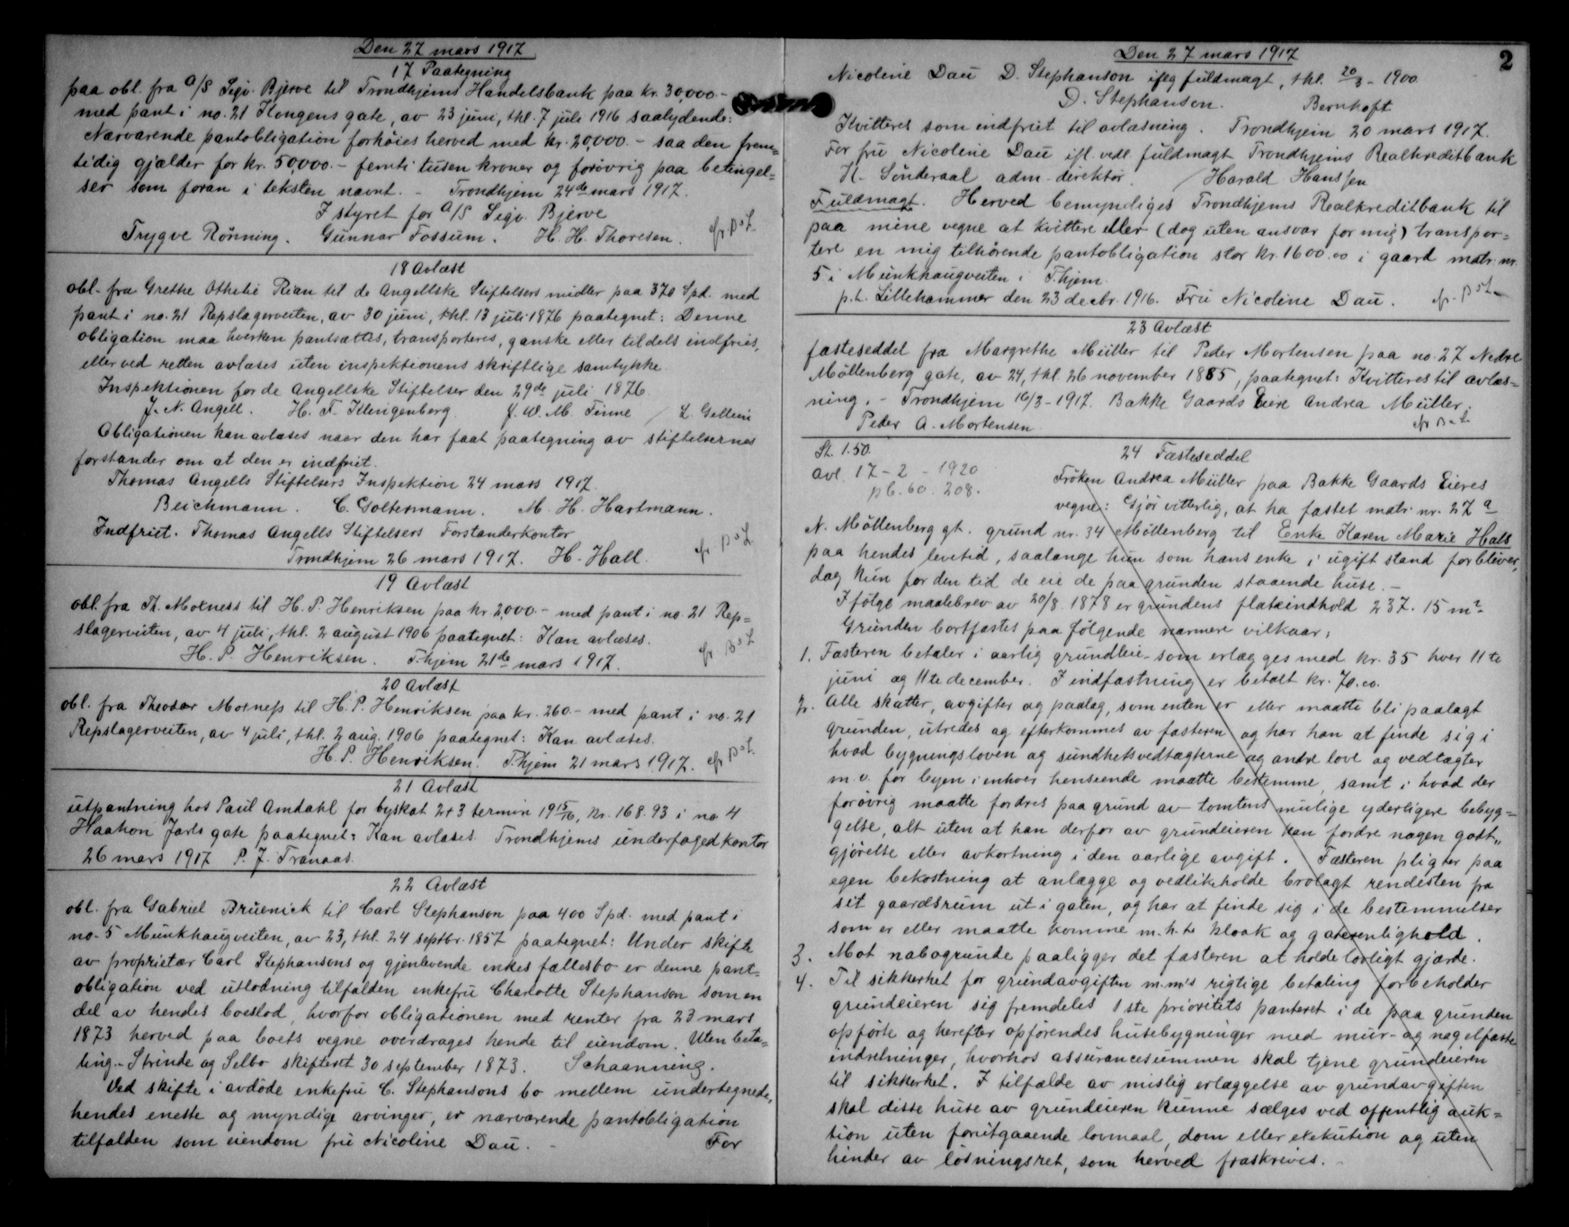 Den 27 mars 1917
17 Paategning
paa obl. fra A/S Sigv. Bjerve til Trondhjems Handelsbank paa kr. 30,000.-
med pant i no. 21 Kongens gate, av 23 juni, thl. 7 juli 1916 saalydende:
Nærværende pantobligation forhöies herved med kr. 20,000.- saa den frem=
tidig gjælder for kr. 50,000.- femti tusen kroner og forövrig paa betingel=
ser som foran i teksten nævnt. - Trondhjem 24de mars 1917.
I styret for A/S Sigv. Bjerve
Trygve Rönning. Gunnar Fossum. H. H. Thoresen.
18 Avlæst
obl. fra Grethe Othelie Rian til de Angellske Stiftelsers midler paa 370 Spd. med
pant i no. 21 Repslagerveiten, av 30 juni, thl. 13 juli 1876 paategnet: Denne
obligation maa hverken pantsættes, transporteres, ganske eller tildels indfries,
eller ved retten avlæses uten inspektionens skriftlige samtykke
Inspektionen for de Angellske Stiftelser den 29de juli 1876.
J. N. Angell. H. F. Klingenberg. J. W. M. Finne / L. Gellein
Obligationen kan avlæses naar den har faat paategning av stiftelsernes
forstander om at den er indfriet.
Thomas Angells Stiftelsers Inspektion 24 mars 1917.
Beichmann. C. Goltermann. M. H. Hartmann.
Indfriet. Thomas Angells Stiftelsers Forstanderkontor
Trondhjem 26 mars 1917. H. Hall.
19 Avlæst
obl. fra Th. Moxness til H. P. Henriksen paa kr. 2,000.- med pant i no. 21 Rep=
slagerveiten, av 4 juli, thl. 2 august 1906 paategnet: Kan avlæses.
H. P. Henriksen. T.hjem 21de mars 1917.
20 Avlæst
obl. fra Theodor Moxness til H. P. Henriksen paa kr. 260.- med pant i no. 21
Repslagerveiten, av 4 juli, thl. 2 aug. 1906 paategnet: Kan avlæses.
H. P. Henriksen. T.hjem 21 mars 1917.
21 Avlæst
utpantning hos Paul Amdahl for byskat 2+3 termin 1915/16, kr. 168.93 i no 4
Haakon Jarls gate paategnet: Kan avlæses. Trondhjems underfogedkontor
26 mars 1917 P. J. Tranaas.
22 Avlæst
obl. fra Gabriel Bruenick til Carl Stephanson paa 400 Spd. med pant i
no. 5 Munkhaugveiten, av 23, thl. 24 septbr. 1857 paategnet: Under skifte
av proprietær Carl Stephansons og gjenlevende enkes fællesbo er denne pant=
obligation ved utlodning tilfalden enkefru Charlotte Stephanson som en
del av hendes boeslod, hvorfor obligationen med renter fra 23 mars
1873 herved paa boets vegne overdrages hende til eiendom. Uten beta=
ling. - Strinde og Selbo skifteret 30 september 1873. Schaanning.
Ved skifte i avdöde enkefru C. Stephansons bo mellem undertegnede,
hendes eneste og myndige arvinger, er nærværende pantobligation
tilfalden som eiendom fru Nicoline Dau. - For
Den 27 mars 1917
2
Nicoline Dau D. Stephanson iflg fuldmagt, thl. 20/3 - 1900
D. Stephanson. Bernhoft
Kvitteres som indfriet til avlæsning. Trondhjem 20 mars 1917.
For fru Nicoline Dau ifl. vedl fuldmagt Trondhjems Realkreditbank
K. Sünderaal adm. direktör. / Harald Hanssen
Fuldmagt. Herved bemyndiges Trondhjems Realkreditbank til
paa mine vegne at kvittere eller (dog uten ansvar for mig) transpor=
tere en mig tilhörende pantobligation stor kr. 1600.00 i gaard matr. nr.
5 i Munkhaugveiten i T.hjem
p.t. Lillehammer den 23 decbr. 1916. Fru Nicoline Dau.
23 Avlæst
fæsteseddel fra Margrethe Müller til Peder Mortensen paa no. 27 Nedre
Möllenberg gate, av 24, thl. 26 november 1885, paategnet: Kvitteres til avlæs=
ning. - Trondhjem 16/3 - 1917. Bakke Gaards Eiere Andrea Müller.
Peder A. Mortensen
24 Fæsteseddel
St. 1.50.
avl. 17-2-1920
pb. 60. 208.
Fröken Andrea Müller paa Bakke Gaards Eieres
vegne: Gjör vitterlig, at ha fæstet matr. nr. 27 a
N. Möllenberg gt. grund nr. 34 Möllenberg til Enke Karen Marie Hals
paa hendes levetid, saalænge hun som hans enke i ugift stand forbliver,
dog kun for den tid de eie de paa grunden staaende huse. -
Ifölge maalebrev av 20/8 1878 er grundens flateindhold 237.15 m².
Grunden bortfæstes paa fölgende nærmere vilkaar:
1. Fæsteren betaler i aarlig grundleie som erlægges med kr. 35 hver 11te
juni og 11te december. I indfæstning er betalt kr. 70.00.
2. Alle skatter, avgifter og paalæg, som enten er eller maatte bli paalagt
grunden, utredes og efterkommes av fæsteren og har han at finde sig i
hvad bygningsloven og sundhetsvedtægterne og andre love og vedtægter
m.v. for byen i enhver henseende maatte bestemme, samt i hvad der
forövrig maatte fordres paa grund av tomtens mulige yderligere bebyg=
gelse, alt uten at han derfor av grundeieren kan fordre nogen godt=
gjörelse eller avkortning i den aarlige avgift. Fæsteren pligter paa
egen bekostning at anlægge og vedlikeholde brolagt rendesten fra
sit gaardsrum ut i gaten, og har at finde sig i de bestemmelser
som er eller maatte komme m.h.t. kloak og gaterenlighold.
3. Mot nabogrunde paaligger det fæsteren at holde lovligt gjærde.
4. Til sikkerhet for grundavgiften m.m.'s rigtige betaling forbeholder
grundeieren sig fremdeles 1ste prioritets panteret i de paa grunden
opförte og herefter opförendes husebygninger med mur- og nagelfaste
indretninger, hvorhos assurancesummen skal tjene grundeieren
til sikkerhet. I tilfælde av mislig erlæggelse av grundavgiften
skal disse huse av grundeieren kunne sælges ved offentlig auk=
tion uten forutgaaende lovmaal, dom eller exekution og uten
hinder av lösningsret, som herved fraskrives. -